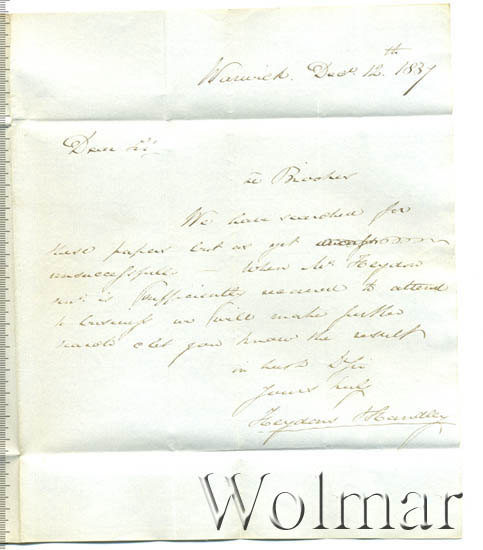 Warwick. Decr. 12th 1837
Dear Sir
re Brookes
We have searched for
these papers but as yet
unsuccessfully — When Mr. Heydon
senr. is sufficiently recovered to attend
to business we will make further
search & let you know the result
in haste Dr Sir
Yours truly
Heydons & Handley
Wolmar